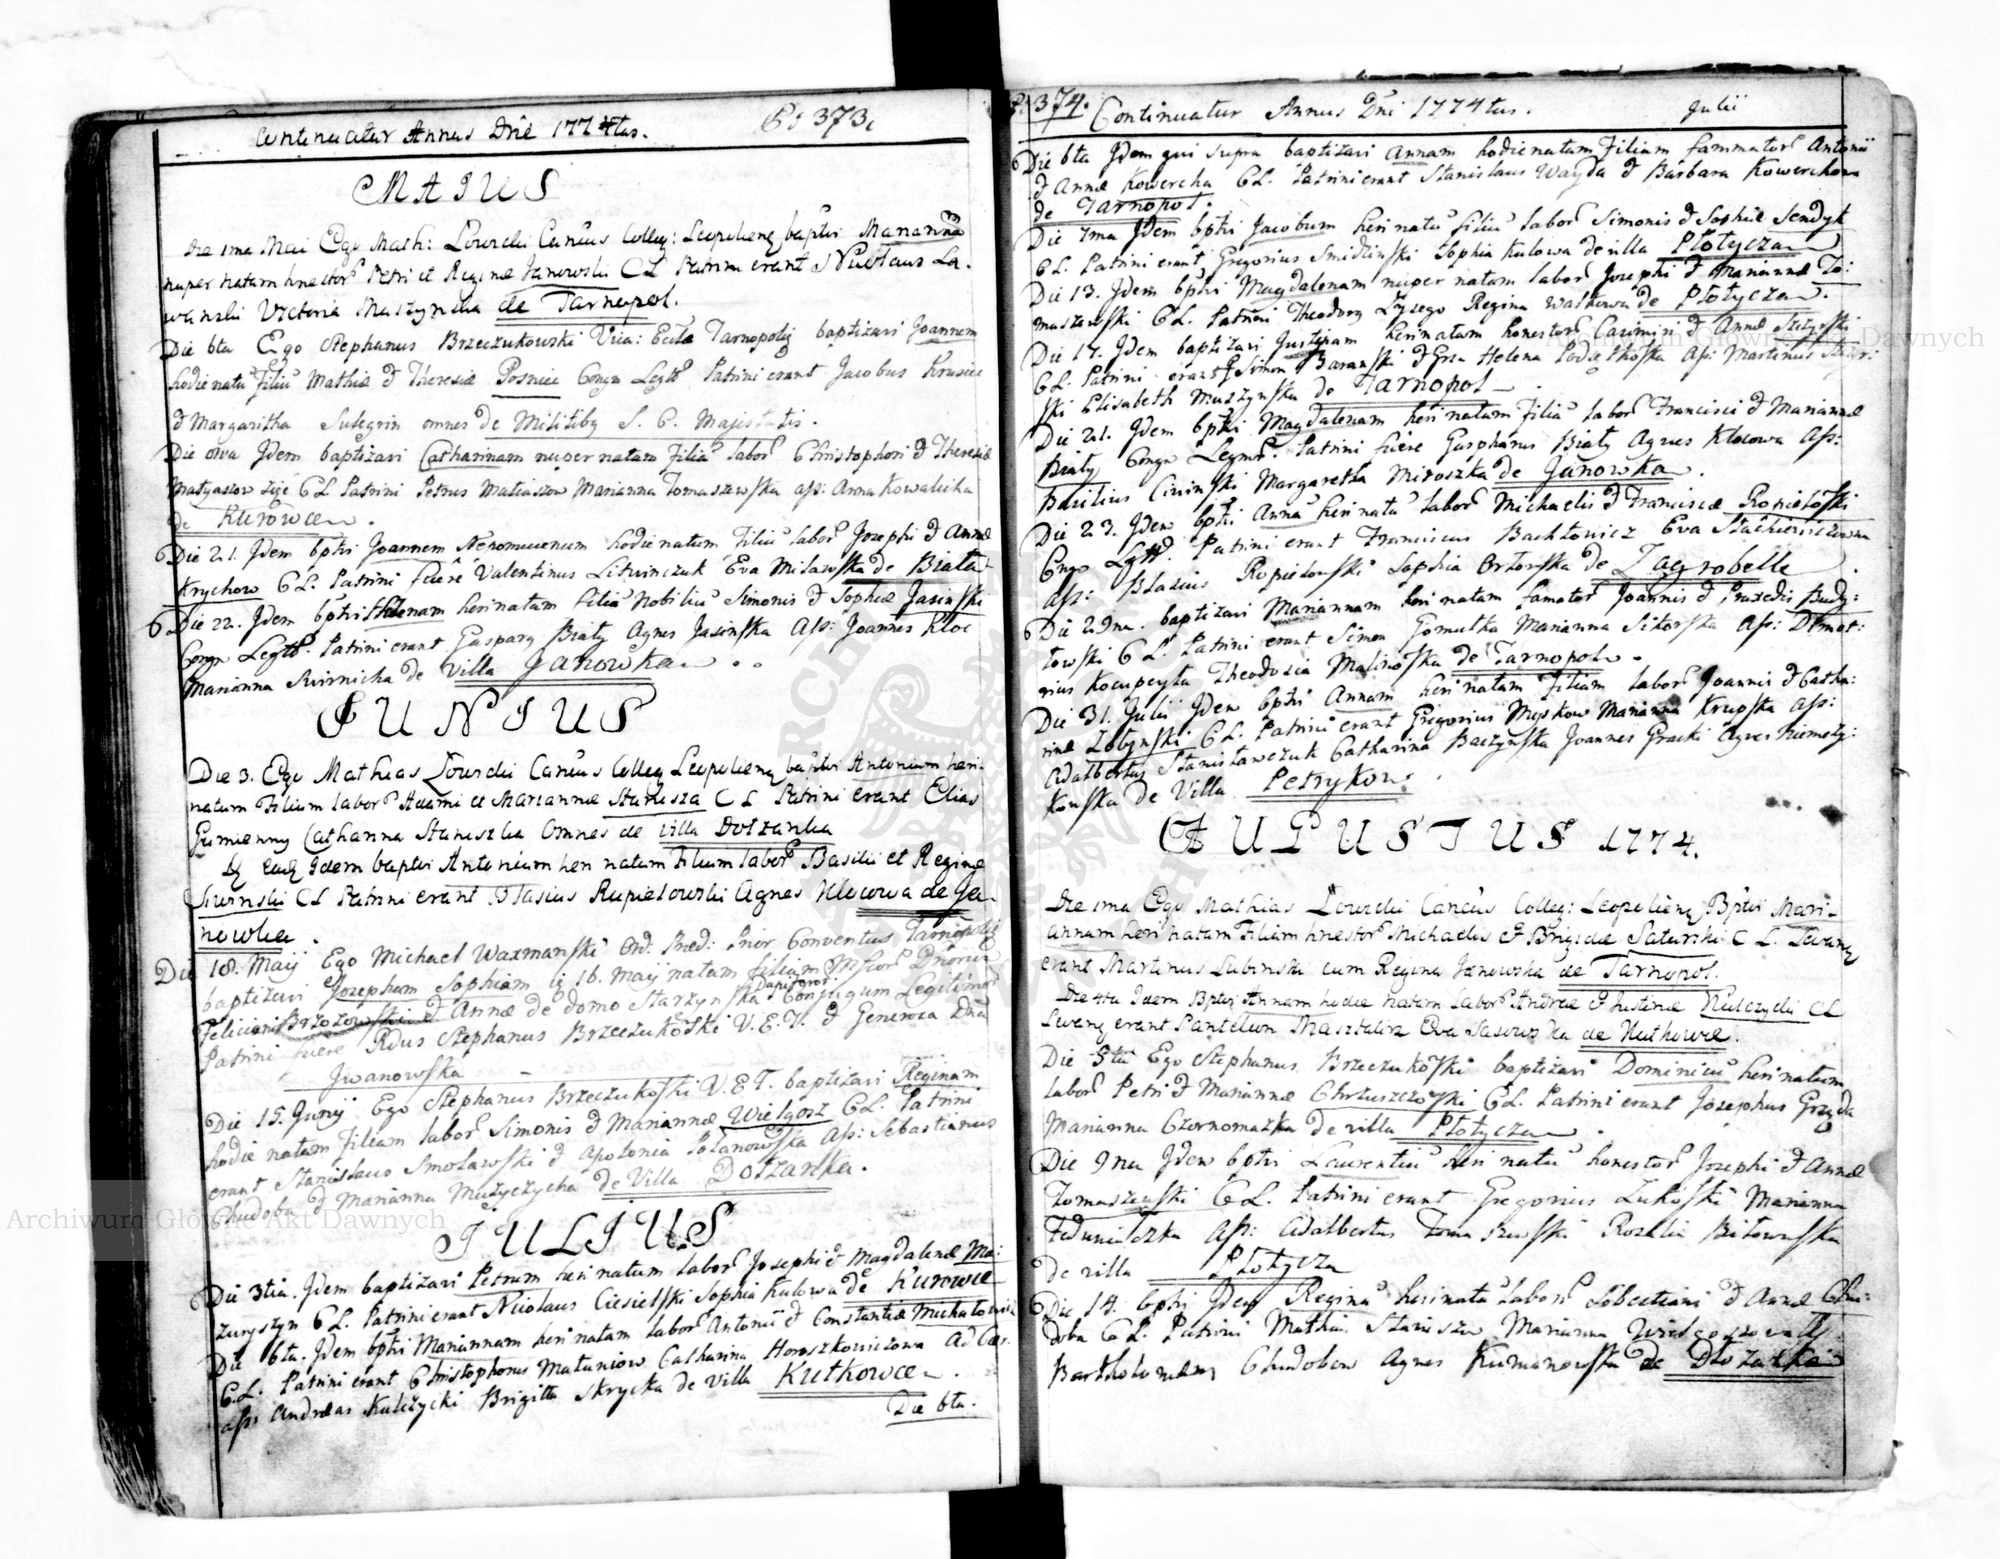 Continuatur Annus Dni 1774tus. 373.
MAIUS
Die 1ma Mai Ego Math: Łowrcki Cancus Colleg: Leopolieng baptvi Mariannã
nuper natam hnestor Petri et Reginæ Janowski CL Patrini erant Nicolaus La-
wanski Victoria Muszynska de Tarnopol.
Die 6ta Ego Stephanus Brzeczukowski Eccla Tarnopolig baptizavi Joannem
hodie natũ Filiũ Mathiæ & Theresiæ Posniec Congu Legtt Patrini erant Jacobus Krusiec
& Margaritha omnes de Militiby S. C. Majestatis.
Die 8va Jdem baptizavi Catharinam nuper natam Filiã labor Christophori & Theresiæ
CL Patrini Petrus Matiaszow Marianna Tomaszewska ass: Anna Kowalicha
de Kurowce.
Die 21. Jdem bptvi Joannem Nepomucenum hodie natum Filiũ labor Josephi & Annæ
Krychow CL. Patrini fuere Valentinus Litwinczuk Eva Milawska de Biała
Die 22. Jdem bptvi Helenam heri natam filiã Nobiliũ Simonis & Sophiæ Jasinski
Congu Legtt. Patrini erant Gaspary Biały Agnes Jasinska Ass: Joannes Kloc
Marianna Swirnicha de Villa Janowka
JUNIUS
Die 3. Ego Mathias Łowrcki Canẽus Colleg Leopolieng baptvi Antonium heri-
natum Filium labor Adami et Mariannæ Stanisza CL Patrini erant Elias
Gumienny Catharina Staniszka Omnes de villa Dołzanka
Eadem Idem baptvi Antonium heri natum Filium labor Basilii et Reginæ
CL Patrini erant Blasius Rupietowski Agnes Klocowa de Ja-
nowka.
Die 18. Maij Ego Michael Waxmanski Ord. Præd: Prior Conventus Tarnopolig
baptizavi Josepham Sophiam 16. Maij natam filiam Dnorũ
Feliciani Brzozowski & Annæ de domo Starzynska Dapiferor Conjugum Legitimor
Patrini fuere Rdus Stephanus Brzeczukoski V.E.T. & Genewea Dña
Jwanowska
Die 15. Junij Ego Stephanus Brzeczukoski V.E.T. baptizavi Reginam
hodie natam Filiam labor Simonis & Mariannæ Wielgosz CL. Patrini
erant Stanislaus Smolawski & Apolonia Polanowska Ass: Sebastianus
Chudoba & Marianna Muzyczycha de Villa Dołzanka.
JULIUS
Die 3tia. Jdem baptizavi Petrum heri natum labor Josephi & Magdalenæ Ma:
zuryszyn CL. Patrini erant Nicolaus Ciesielski Sophia Kulowa de Kurowce
Die 6ta. Jdem bptvi Mariannam heri natam labor Antonii & Constantiæ Michałowicz
CL. Patrini erant Christophorus Mataniow Catharina Horoszkowiczowa
ass: Andreas Kulczycki Brigitta Skrycka de Villa Kutkowce.
Die 6ta.
374. Continuatur Annus Dni 1774tus. Julii
Die 6ta Jdem qui supra baptizavi Annam hodie natam Filiam fammator Antonii
& Annæ Kowercha CL. Patrini erant Stanislaus Wayda & Barbara Kowerchowa
de Tarnopol.
Die 7ma Jdem bptvi Jacobum heri natũ filiũ labor Simonis & Sophiæ Sendyk
CL. Patrini erant Gregorius Smidzinski Sophia Kulowa de villa Płotycza
Die 13. Jdem bptvi Magdalenam nuper natam labor Josephi & Mariannæ To:
maszewski CL. Patrini Theodory Łysego Regina Waskowa de Płotycza.
Die 17. Jdem baptizavi Justinam heri natam honestor Casimiri & Annæ
CL. Patrini erant Simon Baranski & Helena Ass: Martinus
ski Elisabeth Muszynska de Tarnopol
Die 21. Jdem bptvi Magdalenam heri natam Filiã labor Francisci & Mariannæ
Biały Congu Legmr. Patrini fuere Gasphãrus Biały Agnes Klocowa Ass:
Basilius Margaretha Miroszka de Janowka.
Die 23. Jdem bptvi Annã heri natã labor Michaelis & Franciscæ Ropietoski
Congu Lgtt. Patrini erant Franciscus Bachtowicz Eva
ass: Blasius Ropietowski Sophia Orłowska de Zagrobelle
Die 29na. baptizavi Mariannam heri natam famator Joannis & Praxedis Budy:
łowski CL. Patrini erant Simon Gomułka Marianna Sikorska Ass: Dimet:
rius Kocupeyła Theodosia Malinoska de Tarnopol.
Die 31. Julii Jdem bptvi Annam heri natam Filiam labor Joannis & Catha:
rinæ Zołynski CL. Patrini erant Gregorius Myskow Marianna Krupska Ass:
Adalbertus Stanisławczuk Catharina Baczynska Joannes Gracki Agnes Niemety:
kowska de Villa Petrykow.
AUGUSTUS 1774.
Die 1ma Ego Mathias Łowrcki Canẽus Colleg: Leopolieng Bptvi Mari-
annam heri natam Filiam hnestor Michaelis & Brigidæ Saturski CL. Levang
erant Martinus Lubinski cum Regina Janowska de Tarnopol.
Die 4ta Idem Bptvi Annam hodie natam labor Andreæ & Justinæ Kulczycki CL
Levang erant Pantelion Masztalirz Eva de Kutkowce.
Die 5ta Ego Stephanus Brzeczukoski baptizavi Dominicũ heri natum
labor Petri & Mariannæ Chrzuszczowski CL. Patrini erant Josephus Grzyda
Marianna Czornomazka de villa Płotycza
Die 9na Jdem bptvi Laurentiũ heri natũ honestor Josephi & Annæ
Tomaszewski CL. Patrini erant Gregorius Łukoski Marianna
Fedunialczka Ass: Adalbertus Tomaszewski Rozalia Bitowska
de villa Płotycza
Die 14. bptvi Jdem Reginã heri natã labor Sebestiani & Annæ Chu:
doba CL. Patrini Mathias Staniszow Marianna
Bartholomæus Chudobow Agnes Kumanowska de Dłozanka
Archiwum Główne Akt Dawnych
Archiwum Główne Akt Dawnych